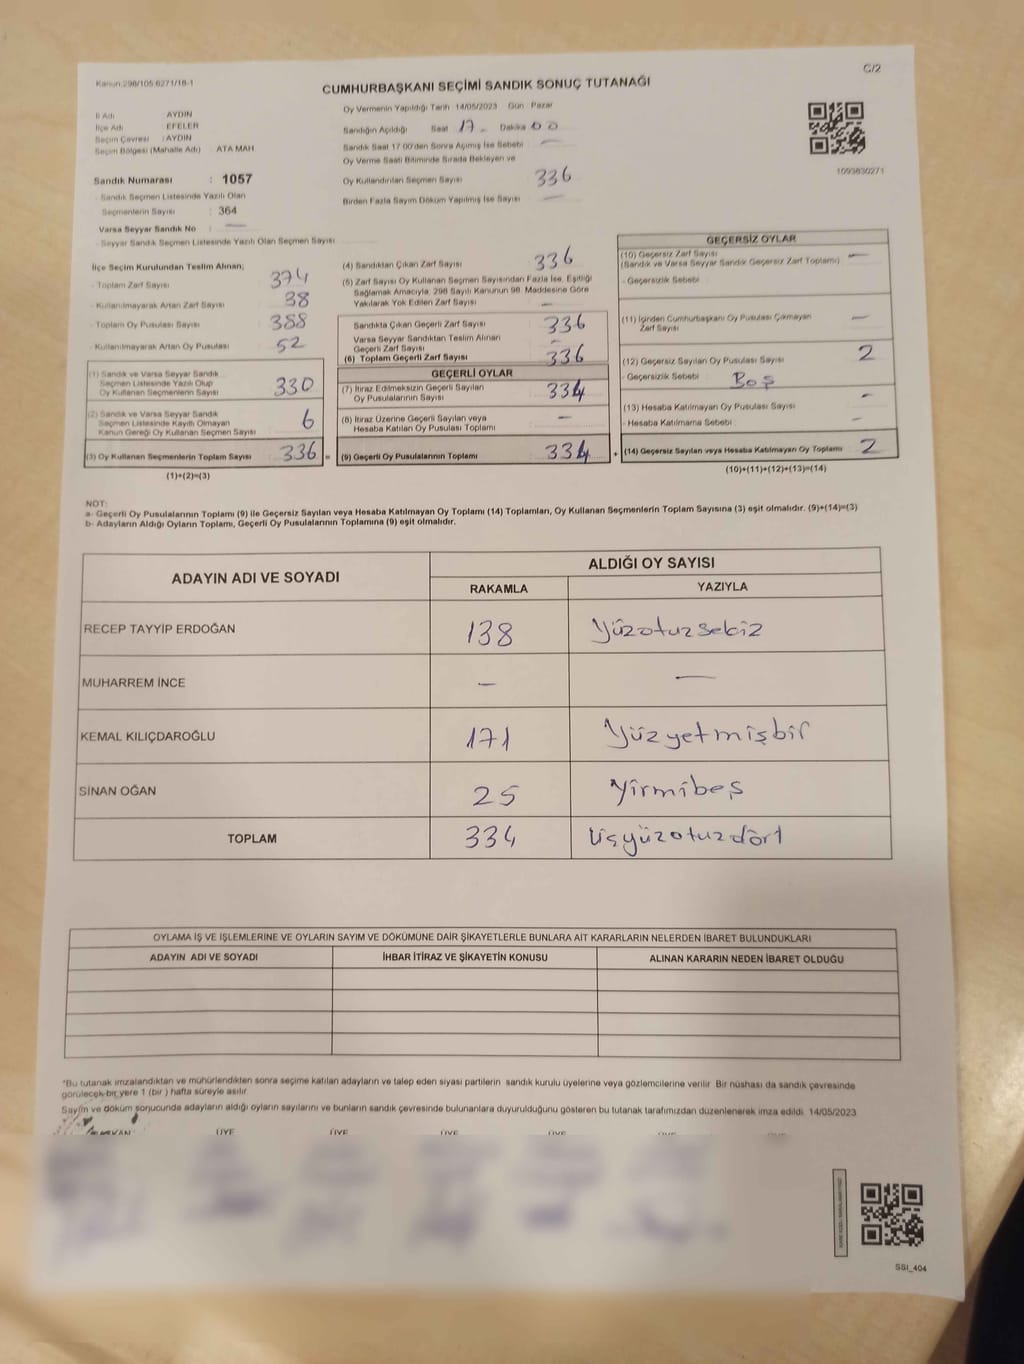 Kanun:298/105 6271/18-1
C/2
CUMHURBAŞKANI SEÇİMİ SANDIK SONUÇ TUTANAĞI
İl Adı AYDIN
İlçe Adı EFELER
Seçim Çevresi : AYDIN
Seçim Bölgesi (Mahalle Adı) : ATA MAH
Sandık Numarası : 1057
- Sandık Seçmen Listesinde Yazılı Olan
Seçmenlerin Sayısı : 364
Varsa Seyyar Sandık No : —
- Seyyar Sandık Seçmen Listesinde Yazılı Olan Seçmen Sayısı
Oy Vermenin Yapıldığı Tarih 14/05/2023 Gün Pazar
Sandığın Açıldığı Saat 17 - Dakika 00
Sandık Saat 17:00'den Sonra Açımış İse Sebebi —
Oy Verme Saati Bitiminde Sırada Bekleyen ve
Oy Kullandırılan Seçmen Sayısı 336
Birden Fazla Sayım Döküm Yapılmış İse Sayısı —
1093830271
İlçe Seçim Kurulundan Teslim Alınan;
- Toplam Zarf Sayısı 374
- Kullanılmayarak Artan Zarf Sayısı 38
- Toplam Oy Pusulası Sayısı 388
- Kullanılmayarak Artan Oy Pusulası 52
(1) Sandık ve Varsa Seyyar Sandık
Seçmen Listesinde Yazılı Olup
Oy Kullanan Seçmenlerin Sayısı 330
(2) Sandık ve Varsa Seyyar Sandık
Seçmen Listesinde Kayıtlı Olmayan
Kanun Gereği Oy Kullanan Seçmen Sayısı 6
(3) Oy Kullanan Seçmenlerin Toplam Sayısı 336 =
(1)+(2)=(3)
(4) Sandıktan Çıkan Zarf Sayısı 336
(5) Zarf Sayısı Oy Kullanan Seçmen Sayısından Fazla İse, Eşitliği
Sağlamak Amacıyla, 298 Sayılı Kanunun 98. Maddesine Göre
Yakılarak Yok Edilen Zarf Sayısı —
Sandıkta Çıkan Geçerli Zarf Sayısı 336
Varsa Seyyar Sandıktan Teslim Alınan
Geçerli Zarf Sayısı —
(6) Toplam Geçerli Zarf Sayısı 336
GEÇERLİ OYLAR
(7) İtiraz Edilmeksizin Geçerli Sayılan
Oy Pusulalarının Sayısı 334
(8) İtiraz Üzerine Geçerli Sayılan veya
Hesaba Katılan Oy Pusulası Toplamı —
(9) Geçerli Oy Pusulalarının Toplamı 334 +
GEÇERSİZ OYLAR
(10) Geçersiz Zarf Sayısı
(Sandık ve Varsa Seyyar Sandık Geçersiz Zarf Toplamı) —
- Geçersizlik Sebebi
(11) İçinden Cumhurbaşkanı Oy Pusulası Çıkmayan
Zarf Sayısı —
(12) Geçersiz Sayılan Oy Pusulası Sayısı 2
- Geçersizlik Sebebi Boş
(13) Hesaba Katılmayan Oy Pusulası Sayısı —
- Hesaba Katılmama Sebebi —
(14) Geçersiz Sayılan veya Hesaba Katılmayan Oy Toplamı 2
(10)+(11)+(12)+(13)=(14)
NOT:
a- Geçerli Oy Pusulalarının Toplamı (9) ile Geçersiz Sayılan veya Hesaba Katılmayan Oy Toplamı (14) Toplamları, Oy Kullanan Seçmenlerin Toplam Sayısına (3) eşit olmalıdır. (9)+(14)=(3)
b- Adayların Aldığı Oyların Toplamı, Geçerli Oy Pusulalarının Toplamına (9) eşit olmalıdır.
ADAYIN ADI VE SOYADI
ALDIĞI OY SAYISI
RAKAMLA YAZIYLA
RECEP TAYYİP ERDOĞAN 138 Yüzotuzsekiz
MUHARREM İNCE — —
KEMAL KILIÇDAROĞLU 171 Yüzyetmişbir
SİNAN OĞAN 25 Yirmibeş
TOPLAM 334 Üçyüzotuzdört
OYLAMA İŞ VE İŞLEMLERİNE VE OYLARIN SAYIM VE DÖKÜMÜNE DAİR ŞİKAYETLERLE BUNLARA AİT KARARLARIN NELERDEN İBARET BULUNDUKLARI
ADAYIN ADI VE SOYADI İHBAR İTİRAZ VE ŞİKAYETİN KONUSU ALINAN KARARIN NEDEN İBARET OLDUĞU
*Bu tutanak imzalandıktan ve mühürlendikten sonra seçime katılan adayların ve talep eden siyasi partilerin sandık kurulu üyelerine veya gözlemcilerine verilir. Bir nüshası da sandık çevresinde
görülecek bir yere 1 (bir ) hafta süreyle asılır.
Sayım ve döküm sonucunda adayların aldığı oyların sayılarını ve bunların sandık çevresinde bulunanlara duyurulduğunu gösteren bu tutanak tarafımızdan düzenlenerek imza edildi. 14/05/2023
ÜYE ÜYE ÜYE ÜYE
SSI_404